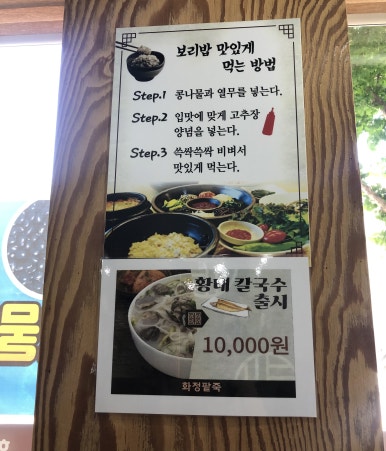 보리밥 맛있게
먹는 방법
Step.1 콩나물과 열무를 넣는다.
Step.2 입맛에 맞게 고추장
양념을 넣는다.
Step.3 쓱싹쓱싹 비벼서
맛있게 먹는다.
황태 칼국수
출시
10,000원
화정팥죽
물